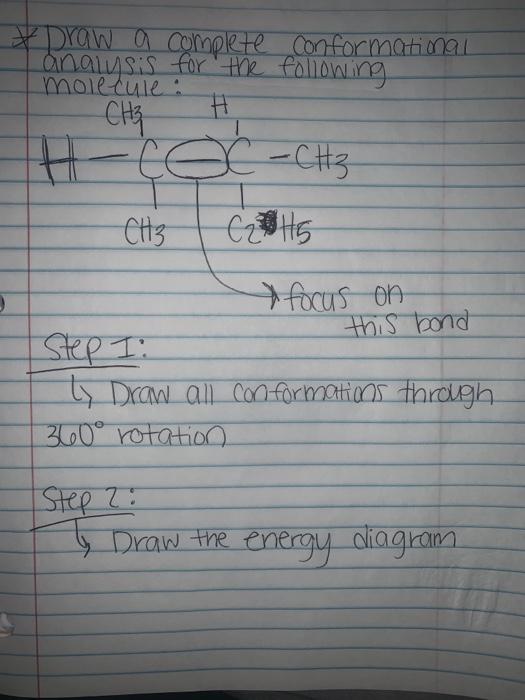 * Draw a complete conformational
analysis for the following
molecule:
CH3 H
H — C — C - CH3
CH3 C2 H5
focus on
this bond
Step 1:
↳ Draw all conformations through
360° rotation
Step 2:
↳ Draw the energy diagram